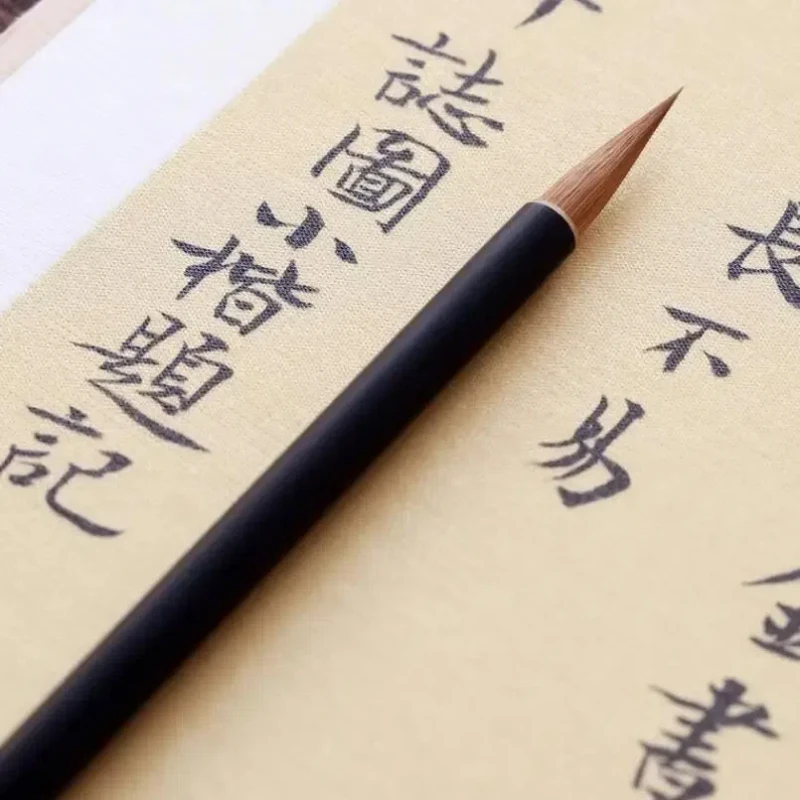 書
長不易
誌圖小楷題記